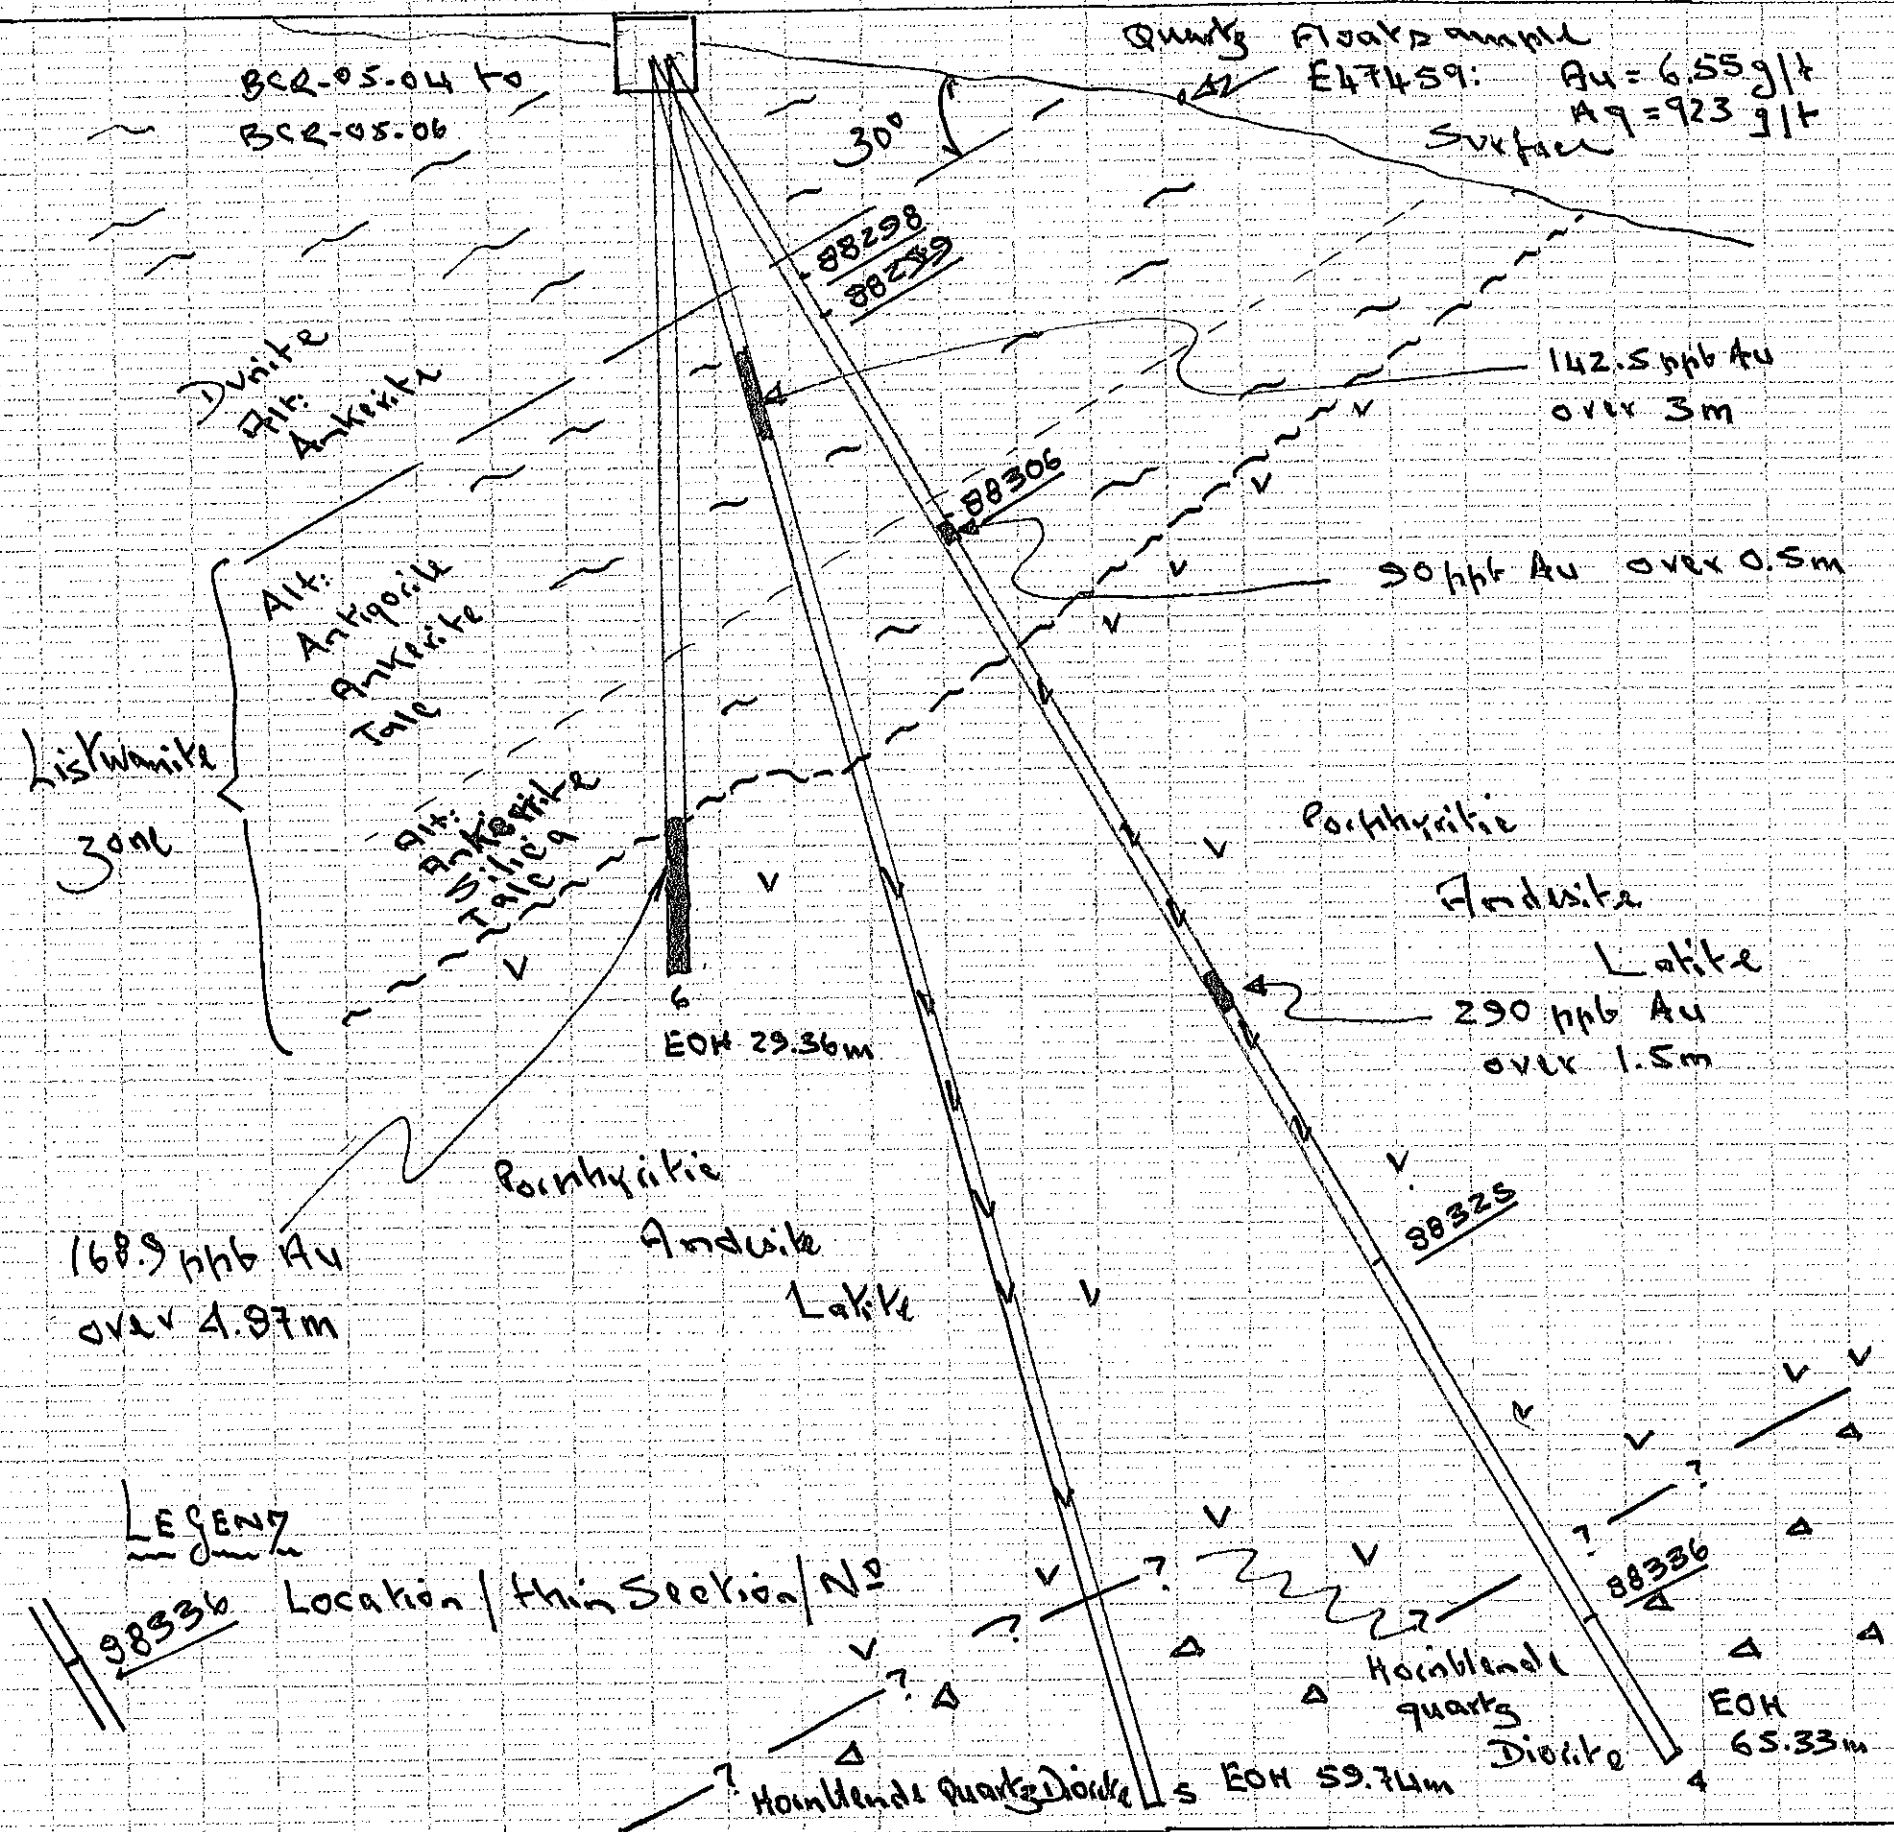 BCR-05-04 to
BCR-05-06
Quartz Float sample
E47459: Au = 6.55 g/t
Ag = 923 g/t
Surface
30°
88298
88299
142.5 ppb Au
over 3m
Dunite
Alt:
Ankerite
88306
90 ppb Au over 0.5m
Listwanite
zone
Alt:
Antigorite
Ankerite
Talc
Alt:
Ankerite
Silica
Talc
6
EOH 29.36m
Porphyritic
Andesite
Latite
290 ppb Au
over 1.5m
Porphyritic
Andesite
Latite
168.9 ppb Au
over 4.97m
88325
LEGEND
98336 Location / thin Section / Nº
88336
Hornblende
quartz
Diorite
EOH
65.33m
4
Hornblende Quartz Diorite
5 EOH 59.74m